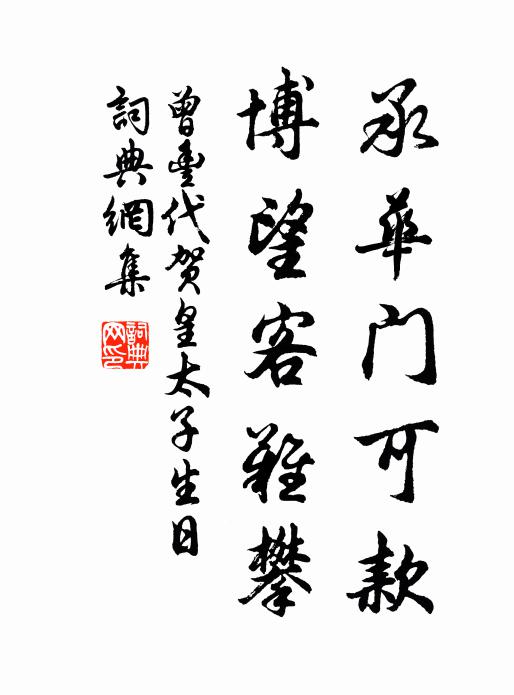 承華門可款
博望客難攀
曾豐代賀皇太子生日
詞典網集
詞典
网印